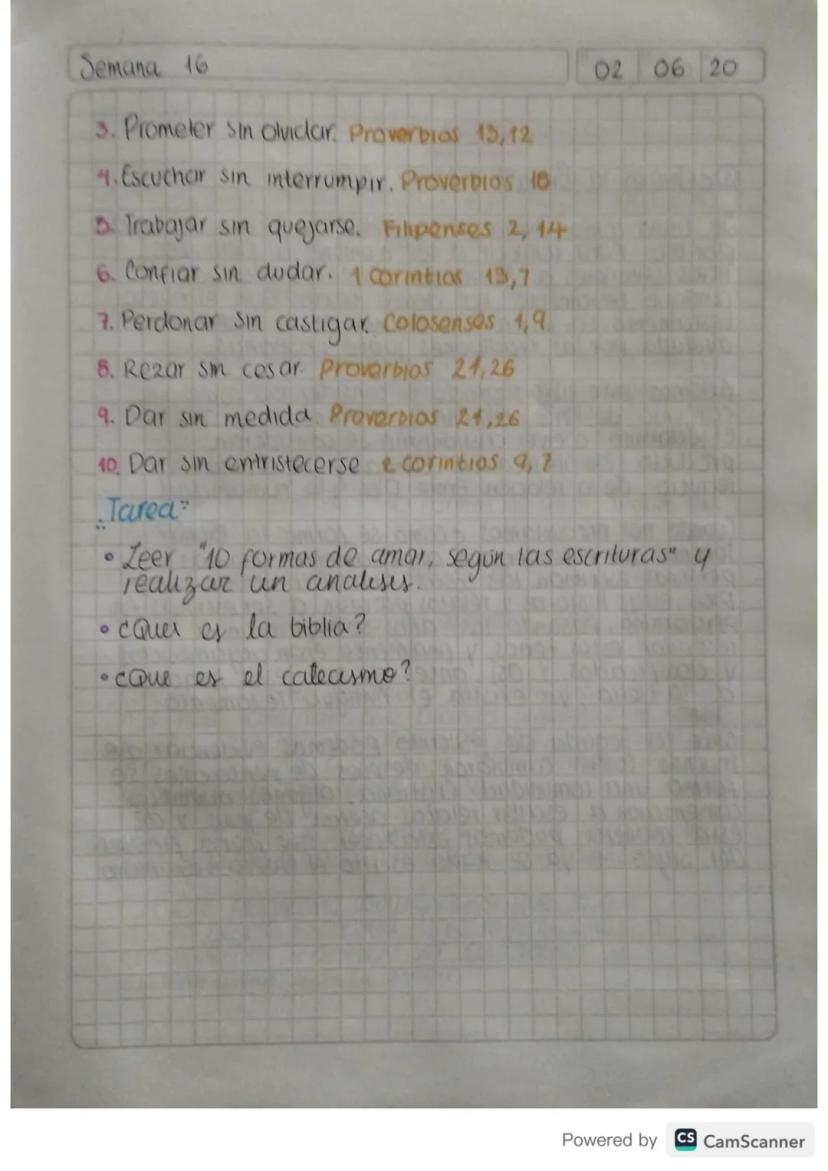 Semana 16
02 06 20
3. Prometer sin olvidar. Proverbios 13,12
4. Escuchar sin interrumpir. Proverbios 18
5. Trabajar sin quejarse. Filipenses 2, 14
6. Confiar sin dudar. 1 Corintios 13,7
7. Perdonar sin castigar. Colosenses 1,9
8. Rezar sin cesar. Proverbios 21,26
9. Dar sin medida. Proverbios 21,26
10. Dar sin entristecerse 2 corintios 9, 7
Tarea
• Leer "10 formas de amar, según las escrituras" y
realizar un analisis.
• ¿Que es la biblia?
• ¿Que es el catecismo?
Powered by CS CamScanner